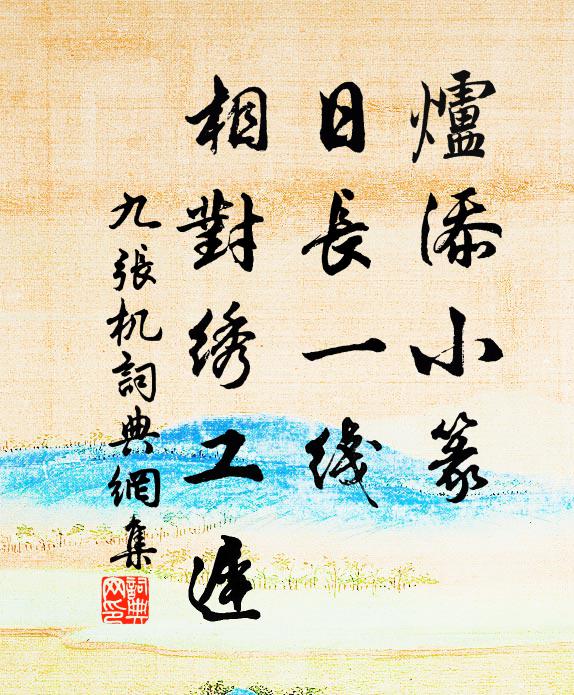 爐添小篆
日長一线
相對绣工遲
九張机詞典網集
詞典